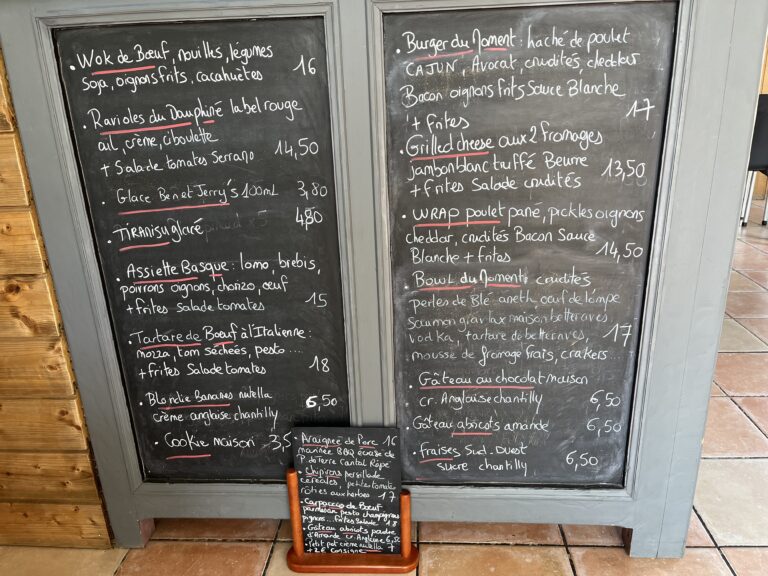 • Wok de Bœuf, nouilles, légumes
soja, oignons frits, cacahuètes 16
• Ravioles du Dauphiné label rouge
ail, crème, ciboulette
+ Salade tomates Serrano 14,50
• Glace Ben et Jerry's 100mL 3,80
• TIRAMISU glacé 4,80
• Assiette Basque : lomo, brebis,
poivrons oignons, chorizo, œuf
+ frites salade tomates 15
• Tartare de Bœuf à l'Italienne :
mozza, tom séchées, pesto....
+ frites Salade tomates 18
• Blondie Bananes nutella
crème anglaise chantilly 6,50
• Cookie maison 3,5
• Burger du Moment : haché de poulet
CAJUN, Avocat, crudités, cheddar
Bacon oignons frits Sauce Blanche
+ frites 17
• Grilled cheese aux 2 fromages
jambon blanc truffé Beurre
+ frites Salade crudités 13,50
• WRAP poulet pané, pickles oignons
cheddar, crudités Bacon Sauce
Blanche + frites 14,50
• Bowl du Moment : crudités
perles de Blé, aneth, œuf de lompe
saumon gravlax maison betteraves,
vodka, tartare de betteraves, 17
mousse de fromage frais, crakers...
• Gâteau au chocolat maison
cr. Anglaise chantilly 6,50
• Gâteau abricots amande 6,50
• fraises Sud-Ouest
sucre chantilly 6,50
• Araignée de Porc 16
marinée BBQ écrasé de
P. de Terre Cantal Râpé
• Chipirons persillade
céréales, petites tomates
rôties aux herbes 17
• Carpaccio de Bœuf
parmesan pesto champignons
pignons... frites Salade 18
• Gâteau abricots poudre
d'Amande cr. Anglaise 6,50
• Petit pot crème nutella 7
+ 2€ Consigne